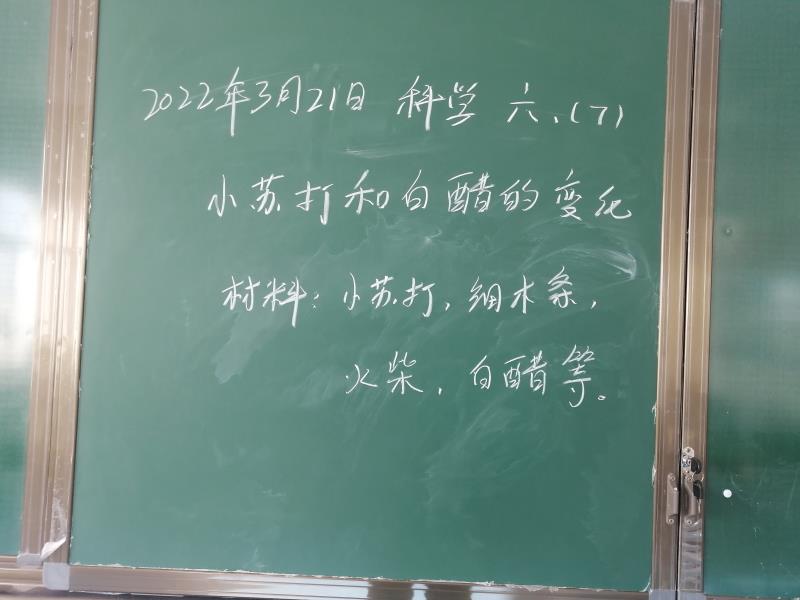 2022年3月21日 科学 六、(7)
小苏打和白醋的变化
材料:小苏打,细木条,
火柴,白醋等。